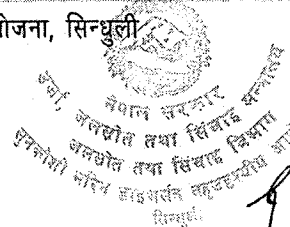 योजना, सिन्धुली
नेपाल सरकार
ऊर्जा, जलस्रोत तथा सिंचाइ मन्त्रालय
जलस्रोत तथा सिंचाइ विभाग
सुनकोशी मरिन डाइभर्सन बहुउद्देश्यीय
सिन्धुली